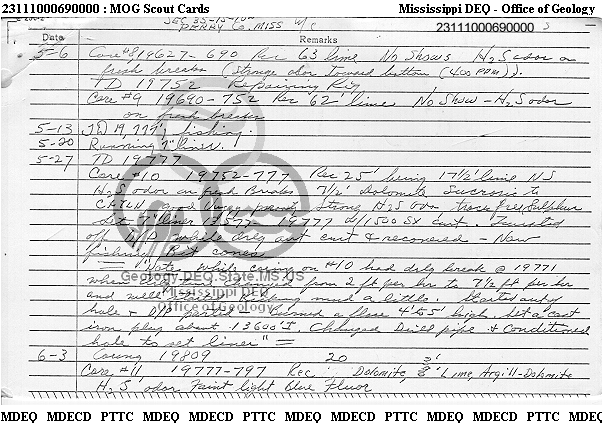 23111000690000 : MOG Scout Cards
Mississippi DEQ - Office of Geology
SEC 35-15-10
PERRY Co. MISS W/C
23111000690000 S
Date
Remarks
5-6 Core #8 19627-690 Rec 63' lime No Shows H2S odor on
fresh breaks (Strange odor Toward bottom (400 PPM)).
TD 19752 Repairing Rig
Core #9 19690-752 Rec '62' lime No Show - H2S odor
on fresh breaks
5-13 TD 19,777', fishing.
5-20 Running 7" liner.
5-27 TD 19777
Core #10 19752-777 Rec 25' being 17 1/2' lime NS
H2S odor on fresh Breaks 7 1/2' Dolomite Sucrosic to
Good strong H2S odor trace free Sulphur
Set 7" liner - 19777 w/1500 SX cmt.
off D/P while drlg out cmt & recovered - Now
fishing Bit cones
"Note: While coring on #10 had drlg break @ 19771
when from 2 ft per hr to 7 1/2 ft per hr
and well mud a little. Started out of
hole & D/P burned a flare 4' to 5' high. Set a cast
iron plug about 13600'. Changed Drill pipe & Conditioned
hole to set liner" =
Geology.DEQ.State.MS.US
Mississippi DEQ
Office of Geology
6-3 Coring 19809
Core #11 19777-797 Rec 20' Dolomite, 3' Lime, Argill-Dolomite
H2S odor Faint light blue Fluor
MDEQ MDECD PTTC MDEQ MDECD PTTC MDEQ MDECD PTTC MDEQ MDECD PTTC MDEQ